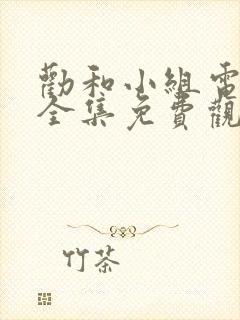 勸和小組電
全集免費觀
竹茶